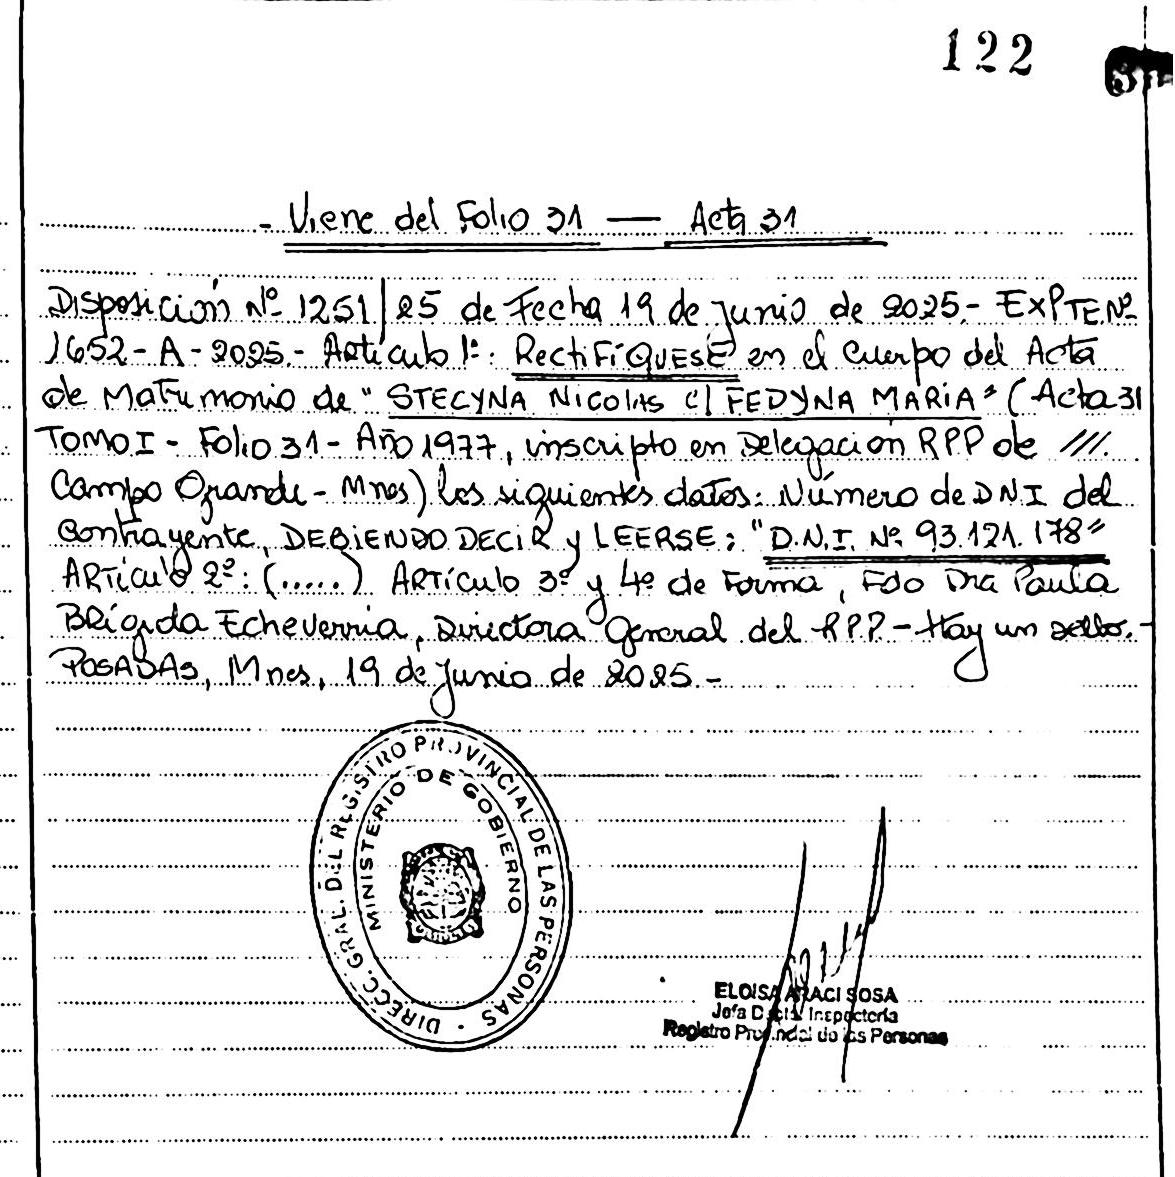 122
- Viene del Folio 31 — Acta 31
Disposición Nº 1251/25 de Fecha 19 de Junio de 2025.- EXPTE.Nº
1652-A-2025.- Artículo 1º: RectiFíQUESE en el cuerpo del Acta
de Matrimonio de "STECYNA NICOlAS C/ FEDYNA MARIA" (Acta 31
TOMO I - Folio 31 - Año 1977, inscripto en Delegación RPP de ///.
Campo Grande - Mnes) los siguientes datos: Número de DNI del
Contrayente, DEBIENDO DECIR y LEERSE: "D.N.I. Nº 93.121.178"
ARTículo 2º: (......) ARTículo 3º y 4º de Forma, Fdo Dra Paula
Brígida Echeverria, Directora General del RPP - Hay un sello.-
POSADAS, Mnes, 19 de Junio de 2025.-
DIRECC. GRAL. DEL REGISTRO PROVINCIAL DE LAS PERSONAS
MINISTERIO DE GOBIERNO
ELOISA ARACI SOSA
Jefa Inspectoría
Registro Provincial de las Personas